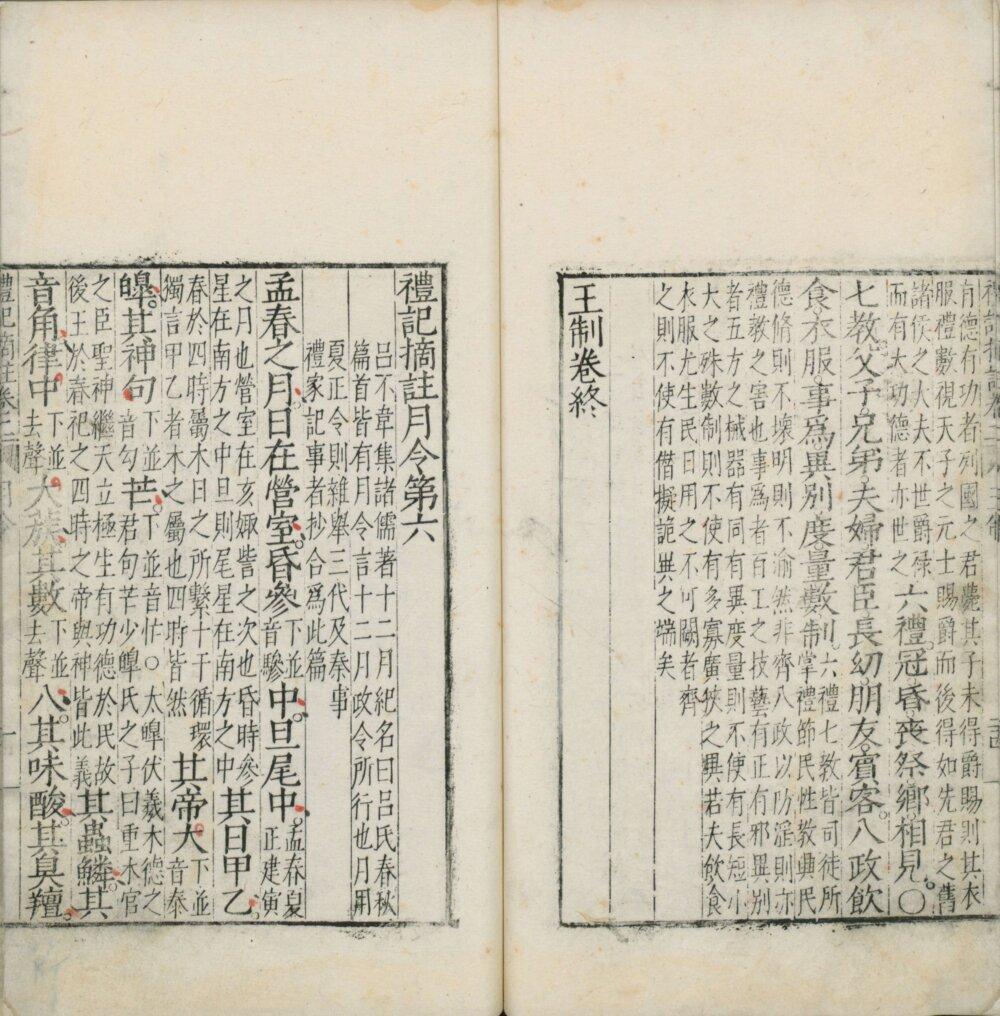 有德有功者列國之君薨其子未得爵賜則其衣
服禮數視天子之元士賜爵而後得如先君之舊
諸侯之大夫不世爵祿
而有大功德者亦世之六禮冠昏喪祭鄉相見○
七教父子兄弟夫婦君臣長幼朋友賓客八政飲
食衣服事爲異別度量數制六禮七教皆司徒所
掌禮節民性教興民
德脩則不壞明則不渝然非齊八政以防淫則亦
禮教之害也事爲者百工之技藝有正有邪異別
者五方之械器有同有異度量則不使有長短小
大之殊數制則不使有多寡廣狹之異若夫飲食
衣服尤生民日用之不可闕者齊
之則不使有僣擬詭異之端矣
王制卷終
禮記摘註月令第六
呂不韋集諸儒著十二月紀名曰呂氏春秋
篇首皆有月令言十二月政令所行也月用
夏正令則雜舉三代及秦事
禮家記事者抄合爲此篇
孟春之月日在營室昏參下並音驂中旦尾中孟春夏正建寅
之月也營室在亥娵訾之次也昏時參
星在南方之中旦則尾星在南方之中其日甲乙
春於四時屬木日之所繫十干循環
獨言甲乙者木之屬也四時皆然其帝大下並音泰
皥其神句下並音勾芒下並音忙○太皥伏羲木德之
君句芒少皥氏之子曰重木官
之臣聖神繼天立極生有功德於民故
後王於春祀之四時之帝與神皆此義其蟲鱗其
音角律中下並去聲大蔟其數下並去聲八其味酸其臭羶
禮記摘註卷之二